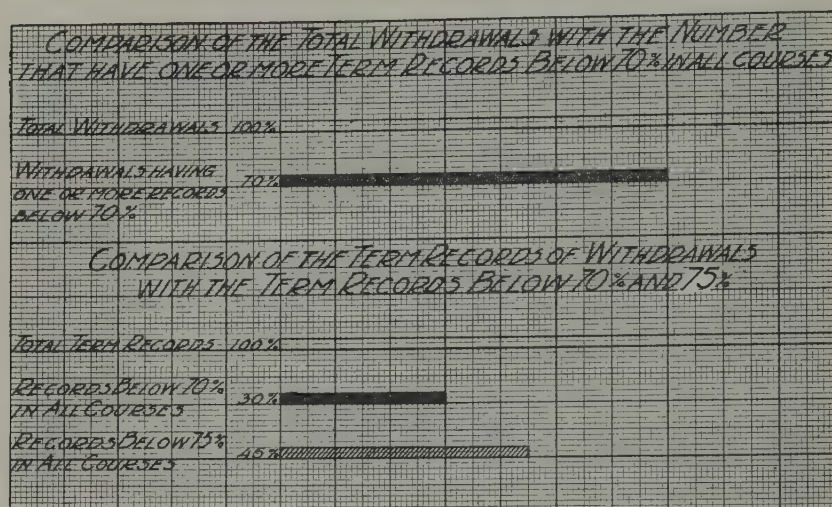 COMPARISON OF THE TOTAL WITHDRAWALS WITH THE NUMBER
THAT HAVE ONE OR MORE TERM RECORDS BELOW 70% IN ALL COURSES
TOTAL WITHDRAWALS 100%
WITHDRAWALS HAVING
ONE OR MORE RECORDS 70%
BELOW 70%
COMPARISON OF THE TERM RECORDS OF WITHDRAWALS
WITH THE TERM RECORDS BELOW 70% AND 75%
TOTAL TERM RECORDS 100%
RECORDS BELOW 70%
IN ALL COURSES 30%
RECORDS BELOW 75%
IN ALL COURSES 45%